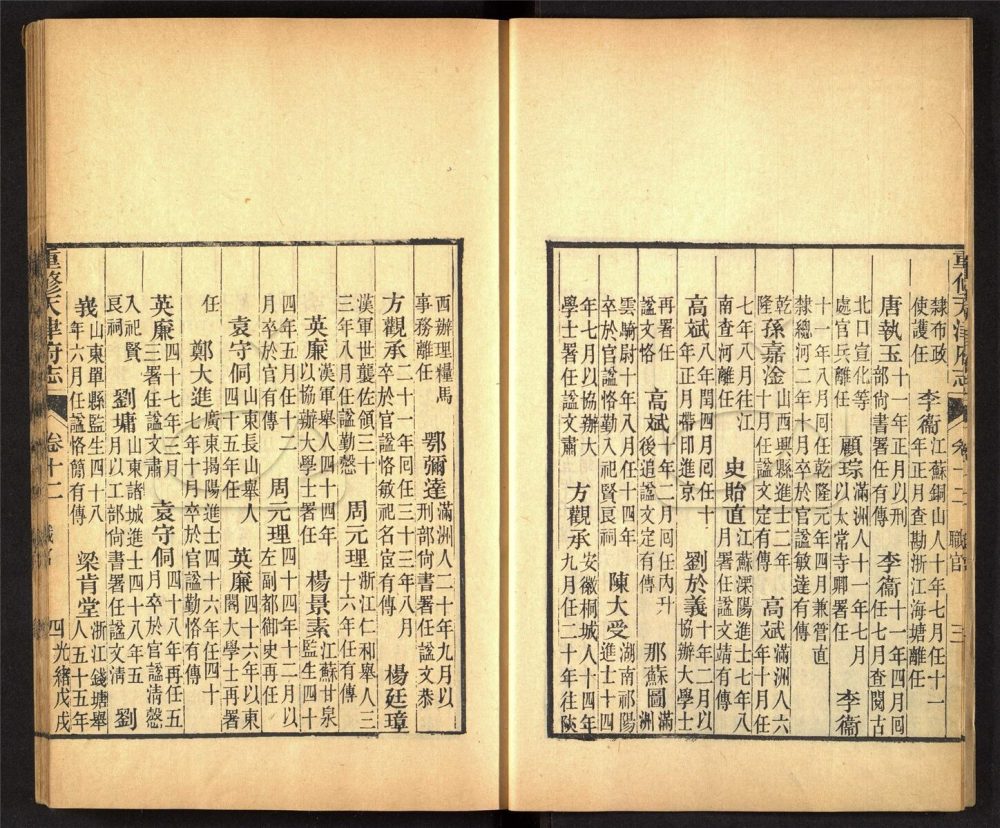 重修天津府志 卷十二 職官 三
隸布政使護任 李衞 江蘇銅山人十年七月任十一年正月查勘浙江海塘離任
唐執玉 十一年正月以刑部尙書署任有傳 李衞 十一年四月囘任七月查閱古
北口宣化等處官兵離任 顧琮 十一年七月以太常寺卿署任 李衞
十一年八月囘任乾隆元年四月兼管直隸總河二年十月卒於官諡敏達有傳
乾隆 孫嘉淦 山西興縣進士二年十月任諡文定有傳 高斌 滿洲人六年十月任
七年八月往江南查河離任 史貽直 江蘇溧陽進士七年八月署任諡文靖有傳
高斌 八年閏四月囘任十年正月帶印進京 劉於義 十年二月以協辦大學士
再署任諡文恪 高斌 十年十二月囘任內升後追諡文定有傳 那蘇圖 滿洲
雲騎尉十年八月任十四年卒於官諡恪勤入祀賢良祠 陳大受 湖南祁陽進士十四
年七月以協辦大學士署任諡文肅 方觀承 安徽桐城人十四年九月任二十年往陝
西辦理糧馬事務離任 鄂彌達 滿洲人二十年九月以刑部尙書署任諡文恭
方觀承 二十一年囘任三十三年八月卒於官諡恪敏祀名宦有傳 楊廷璋
漢軍世襲佐領三十三年八月任諡勤慤 周元理 浙江仁和舉人三十六年任有傳
英廉 漢軍舉人四十四年以協辦大學士署任 楊景素 江蘇甘泉監生四十
四年五月任十二月卒於官有傳 周元理 四十四年十二月以左副都御史再任
袁守侗 山東長山舉人四十五年任 英廉 四十六年以東閣大學士再署
任 鄭大進 廣東揭陽進士四十六年任四十七年十月卒於官諡勤恪有傳
英廉 四十七年三月三署任諡文肅 袁守侗 四十八年再任五月卒於官諡淸慤
入祀賢良祠 劉墉 山東諸城進士四十八年五月以工部尙書署任諡文淸 劉
峩 山東單縣監生四十八年六月任諡恪簡有傳 梁肯堂 浙江錢塘舉人五十五年
重修天津府志 卷十二 職官 四 光緒戊戌